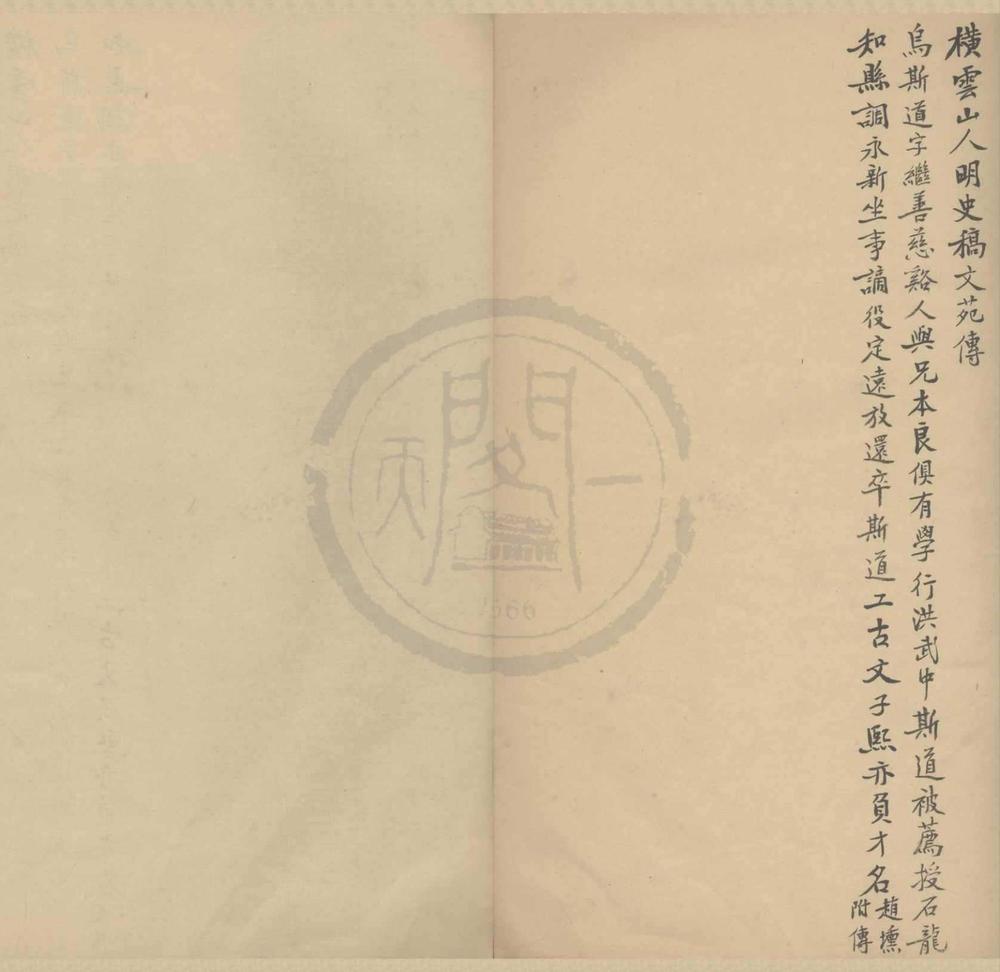 橫雲山人明史稿文苑傳
烏斯道字繼善慈谿人與兄本良俱有學行洪武中斯道被薦授石龍
知縣調永新坐事謫役定遠放還卒斯道工古文子熙亦負才名趙壎附傳
天一閣
1566